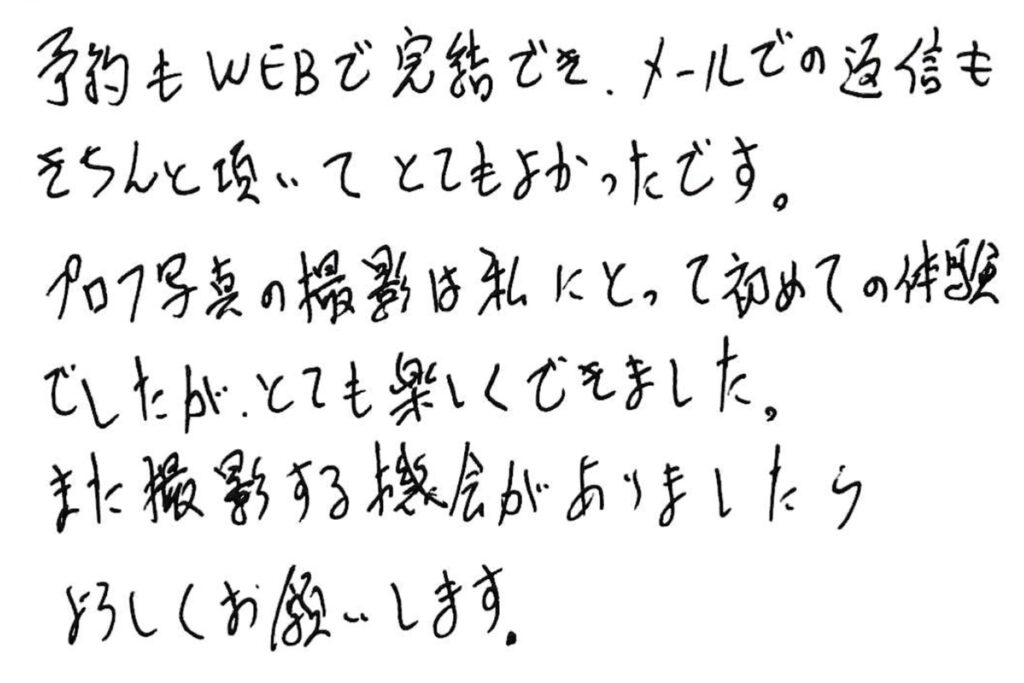 予約もWEBで完結でき、メールでの返信も
きちんと頂いてとてもよかったです。
プロフ写真の撮影は私にとって初めての体験
でしたが、とても楽しくできました。
また撮影する機会がありましたら
よろしくお願いします。